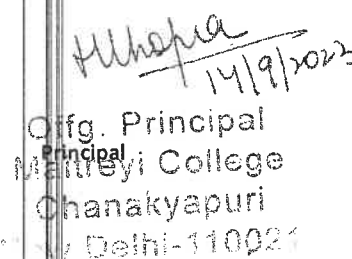 14/9/2023
Offg. Principal
Principal
Maitreyi College
Chanakyapuri
Delhi-110021